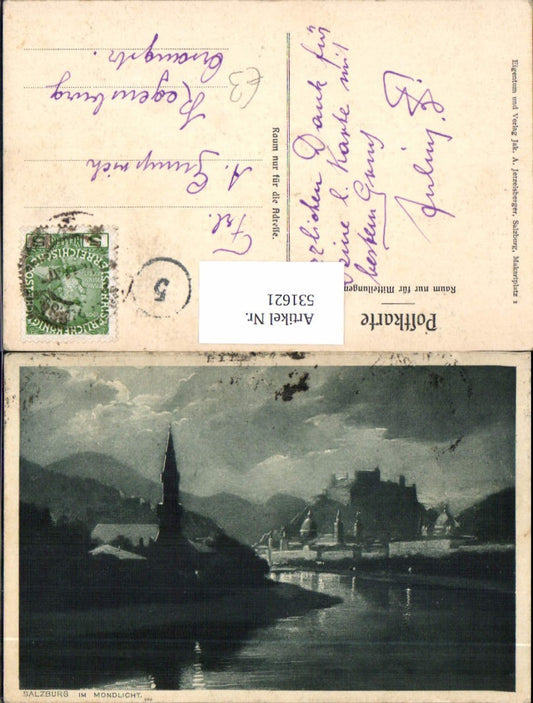 Postkarte
Raum nur für Mitteilungen
Herzlichen Dank für
Deine l. Karte mit
bestem Gruß
Julius
Raum nur für die Adresse.
Frl.
A.
Regensburg
Eigentum und Verlag Jak. A. Jerzelsberger, Salzburg, Makartplatz 1
5
Artikel Nr.
531621
SALZBURG IM MONDLICHT.